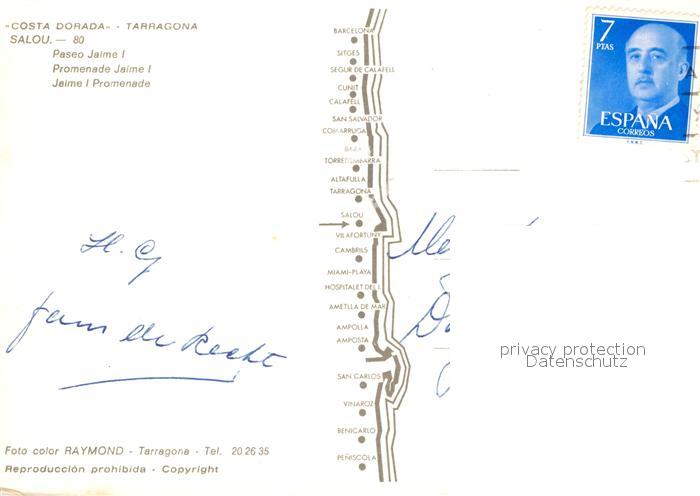 -COSTA DORADA- - TARRAGONA
SALOU. — 80
Paseo Jaime I
Promenade Jaime I
Jaime I Promenade
H. G
fam de Recht
Foto color RAYMOND - Tarragona - Tel. 20 26 35
Reproducción prohibida - Copyright
BARCELONA
SITGES
SEGUR DE CALAFELL
CUNIT
CALAFELL
SAN SALVADOR
COMARRUGA
BARA
TORREDEMBARRA
ALTAFULLA
TARRAGONA
SALOU
VILAFORTUNY
CAMBRILS
MIAMI-PLAYA
HOSPITALET DEL I.
AMETLLA DE MAR
AMPOLLA
AMPOSTA
SAN CARLOS
VINAROZ
BENICARLO
PEÑISCOLA
7
PTAS
ESPAÑA
CORREOS
privacy protection
Datenschutz